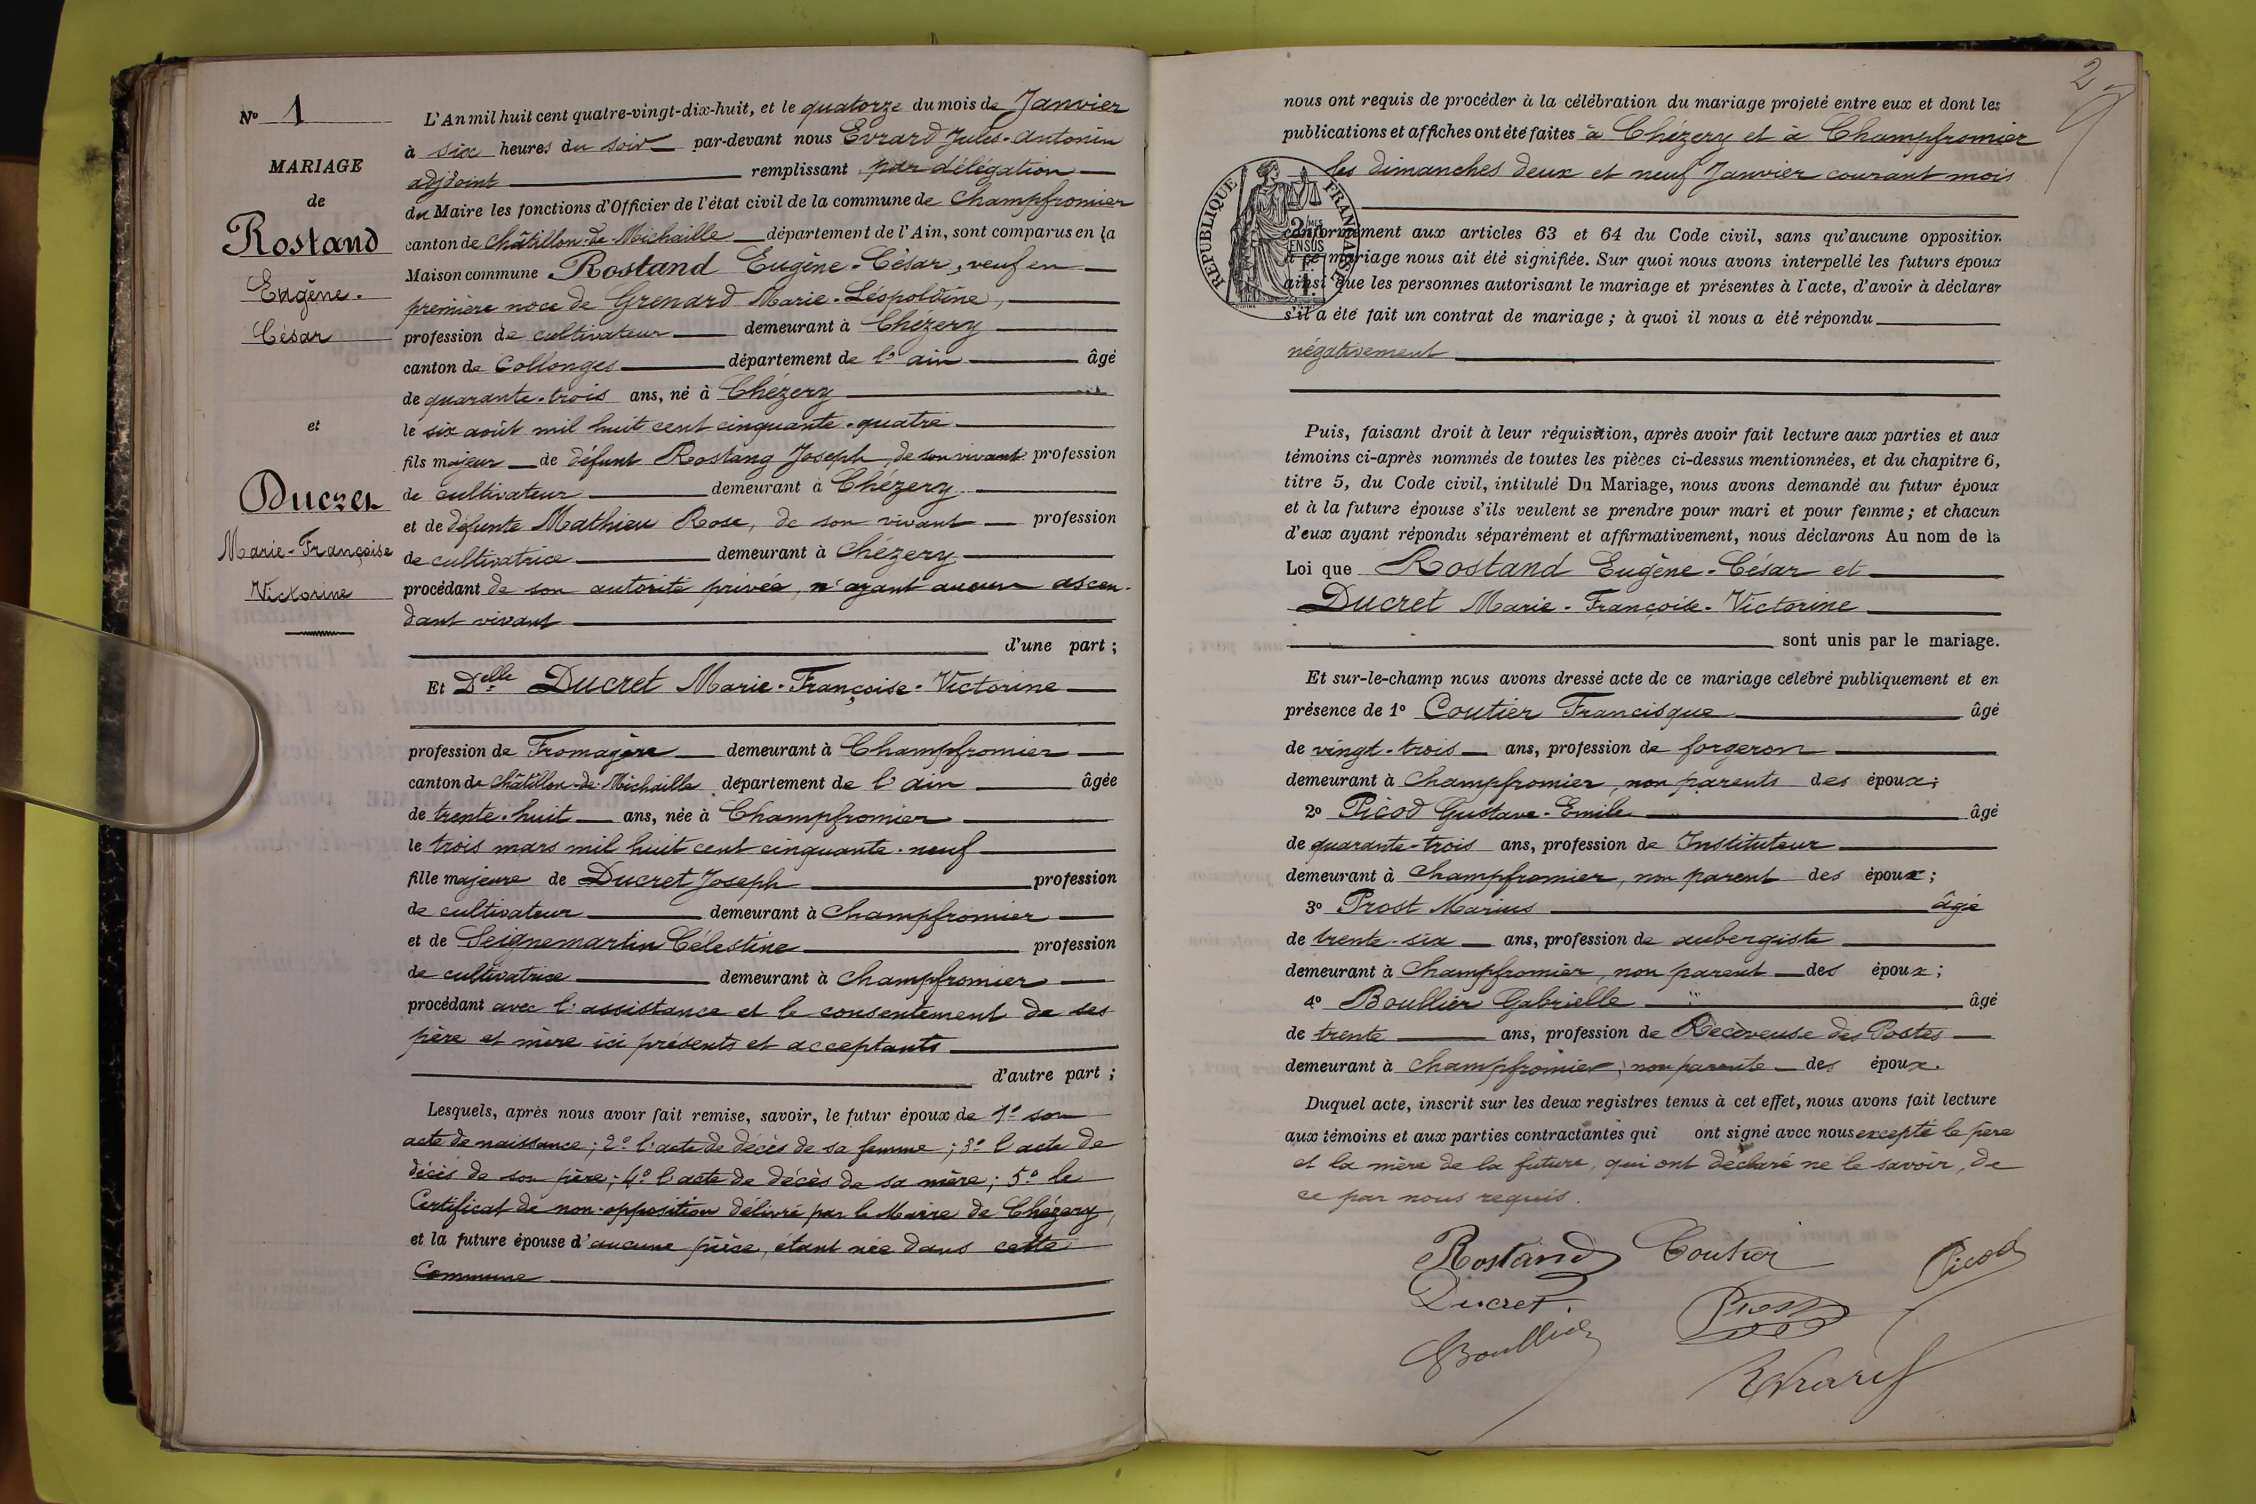 Nº 1
MARIAGE
de
Rostand
Eugène-
César
et
Ducret
Marie-Françoise
Victorine
L'An mil huit cent quatre-vingt-dix-huit, et le quatorze du mois de Janvier
à six heures du soir par-devant nous Evrard Jules-Antonin
adjoint remplissant par délégation
du Maire les fonctions d'Officier de l'état civil de la commune de Champfromier
canton de Châtillon-de-Michaille département de l'Ain, sont comparus en la
Maison commune Rostand Eugène-César, veuf en
première noce de Grenard Marie-Léopoldine,
profession de cultivateur demeurant à Chézery
canton de Collonges département de l'ain âgé
de quarante-trois ans, né à Chézery
le six août mil huit cent cinquante-quatre
fils majeur de défunt Rostang Joseph, de son vivant profession
de cultivateur demeurant à Chézery
et de défunte Mathieu Rose, de son vivant profession
de cultivatrice demeurant à Chézery
procédant de son autorité privée, n'ayant aucun ascen-
dant vivant
d'une part ;
Et Delle Ducret Marie-Françoise-Victorine
profession de Fromagère demeurant à Champfromier
canton de Châtillon-de-Michaille département de l'ain âgée
de trente-huit ans, née à Champfromier
le trois mars mil huit cent cinquante-neuf
fille majeure de Ducret Joseph profession
de cultivateur demeurant à Champfromier
et de Seignemartin Célestine profession
de cultivatrice demeurant à Champfromier
procédant avec l'assistance et le consentement de ses
père et mère ici présents et acceptants
d'autre part ;
Lesquels, après nous avoir fait remise, savoir, le futur époux de 1º son
acte de naissance ; 2º l'acte de décès de sa femme ; 3º l'acte de
décès de son père ; 4º l'acte de décès de sa mère ; 5º le
Certificat de non-opposition délivré par le Maire de Chézery,
et la future épouse d'aucune pièce, étant née dans cette
Commune
2
nous ont requis de procéder à la célébration du mariage projeté entre eux et dont les
publications et affiches ont été faites à Chézery et à Champfromier
les dimanches deux et neuf Janvier courant mois
RÉPUBLIQUE FRANÇAISE
conformément aux articles 63 et 64 du Code civil, sans qu'aucune opposition
à ce mariage nous ait été signifiée. Sur quoi nous avons interpellé les futurs époux
ainsi que les personnes autorisant le mariage et présentes à l'acte, d'avoir à déclarer
s'il a été fait un contrat de mariage ; à quoi il nous a été répondu
négativement
Puis, faisant droit à leur réquisition, après avoir fait lecture aux parties et aux
témoins ci-après nommés de toutes les pièces ci-dessus mentionnées, et du chapitre 6,
titre 5, du Code civil, intitulé Du Mariage, nous avons demandé au futur époux
et à la future épouse s'ils veulent se prendre pour mari et pour femme ; et chacun
d'eux ayant répondu séparément et affirmativement, nous déclarons Au nom de la
Loi que Rostand Eugène-César et
Ducret Marie-Françoise-Victorine
sont unis par le mariage.
Et sur-le-champ nous avons dressé acte de ce mariage célébré publiquement et en
présence de 1º Coutier Francisque âgé
de vingt-trois ans, profession de forgeron
demeurant à Champfromier, non parents des époux ;
2º Picod Gustave-Emile âgé
de quarante-trois ans, profession de Instituteur
demeurant à Champfromier, non parent des époux ;
3º Prost Marius âgé
de trente-six ans, profession de aubergiste
demeurant à Champfromier, non parent des époux ;
4º Boullier Gabrielle âgé
de trente ans, profession de Receveuse des Postes
demeurant à Champfromier, non parente des époux.
Duquel acte, inscrit sur les deux registres tenus à cet effet, nous avons fait lecture
aux témoins et aux parties contractantes qui ont signé avec nous excepté le père
et la mère de la future, qui ont déclaré ne le savoir, de
ce par nous requis.
Rostand Coutier Picod
Ducret Prost
GBoullier
Evrard